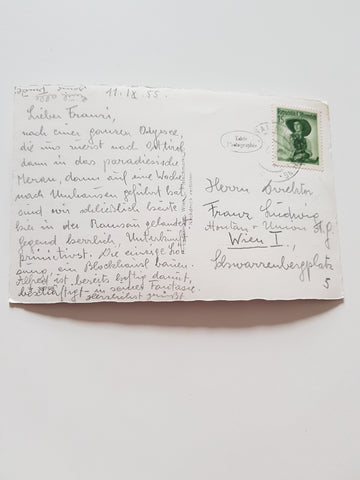 11.IX.55.
Lieber Franzi,
nach einer ganzen Odyssee,
die uns zuerst nach Osttirol,
dann in das paradiesische
Meran, dann auf eine Woche
nach Umhausen geführt hat,
sind wir schließlich heute
hier in der Ramsau gelandet.
Gegend herrlich, Unterkunft
primitivst. Die einzige Lö-
sung, ein Blockhausl bauen.
Alfred ist bereits heftig damit
beschäftigt - in seiner Fantasie.
Herzlichst grüßt
REPUBLIK ÖSTERREICH
Echte
Photographie
Herrn Direktor
Franz Ludwig
Wien I.,
Schwarzenbergplatz
5